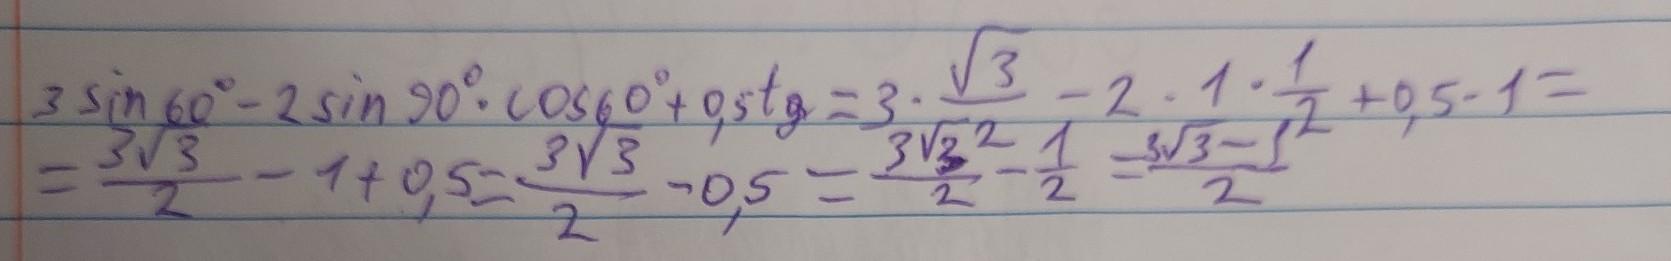 3 sin 60° - 2 sin 90° · cos 60° + 0,5 tg = 3 · √3/2 - 2 · 1 · 1/2 + 0,5 · 1 =
= 3√3/2 - 1 + 0,5 = 3√3/2 - 0,5 = 3√3/2 - 1/2 = 3√3 - 1/2